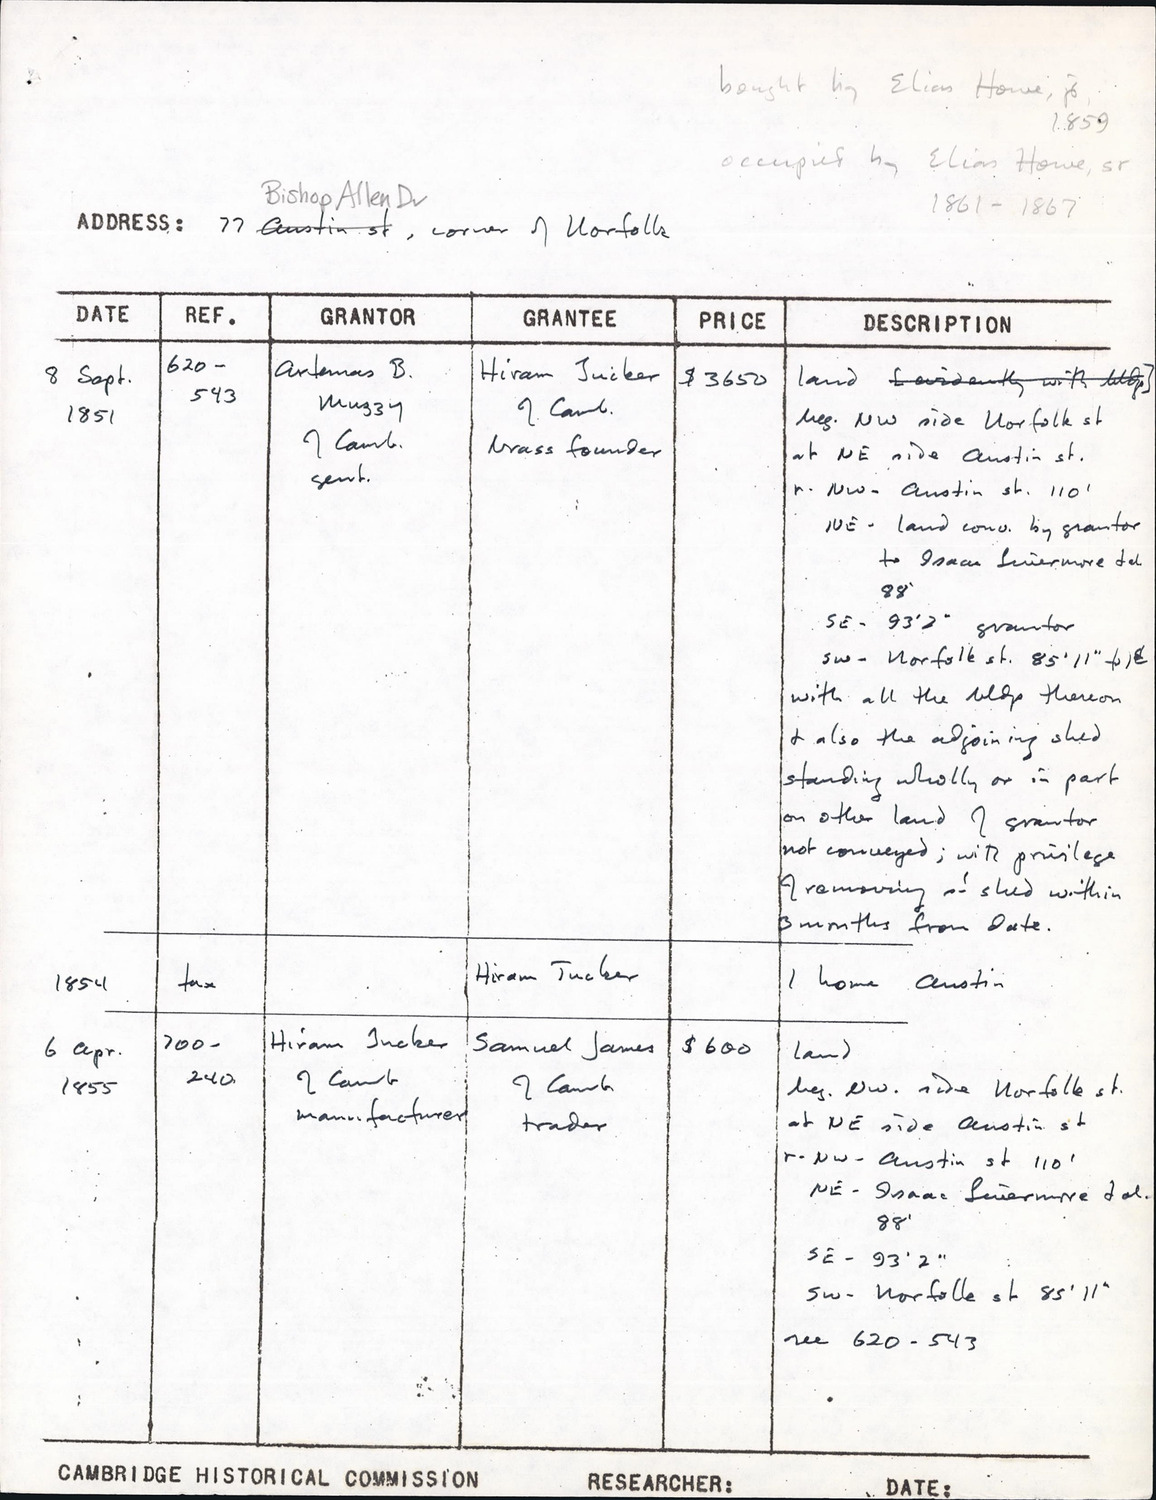 bought by Elias Howe, jr,
1859
occupied by Elias Howe, sr
1861 - 1867
Bishop Allen Dr
ADDRESS: 77 Austin st, corner of Norfolk
DATE REF. GRANTOR GRANTEE PRICE DESCRIPTION
8 Sept.
1851
620-
543
Artemas B.
Muzzy
of Camb.
gent.
Hiram Tucker
of Camb.
brass founder
$3650
land [evidently with bldgs]
beg. NW side Norfolk st
at NE side Austin st.
r. NW- Austin st. 110'
NE- land conv. by grantor
to Isaac Livermore
88'
SE- 93'2" grantor
SW- Norfolk st. 85'11"
with all the bldgs thereon
& also the adjoining shed
standing wholly or in part
on other land of grantor
not conveyed; with privilege
of removing sd shed within
3 months from date.
1854
tax
Hiram Tucker
1 home Austin
6 Apr.
1855
700-
240
Hiram Tucker
of Camb
manufacturer
Samuel James
of Camb
trader
$600
land
beg. NW. side Norfolk st.
at NE side Austin st
r- NW- Austin st 110'
NE- Isaac Livermore
88'
SE- 93'2"
SW- Norfolk st 85'11"
see 620-543
CAMBRIDGE HISTORICAL COMMISSION RESEARCHER: DATE: